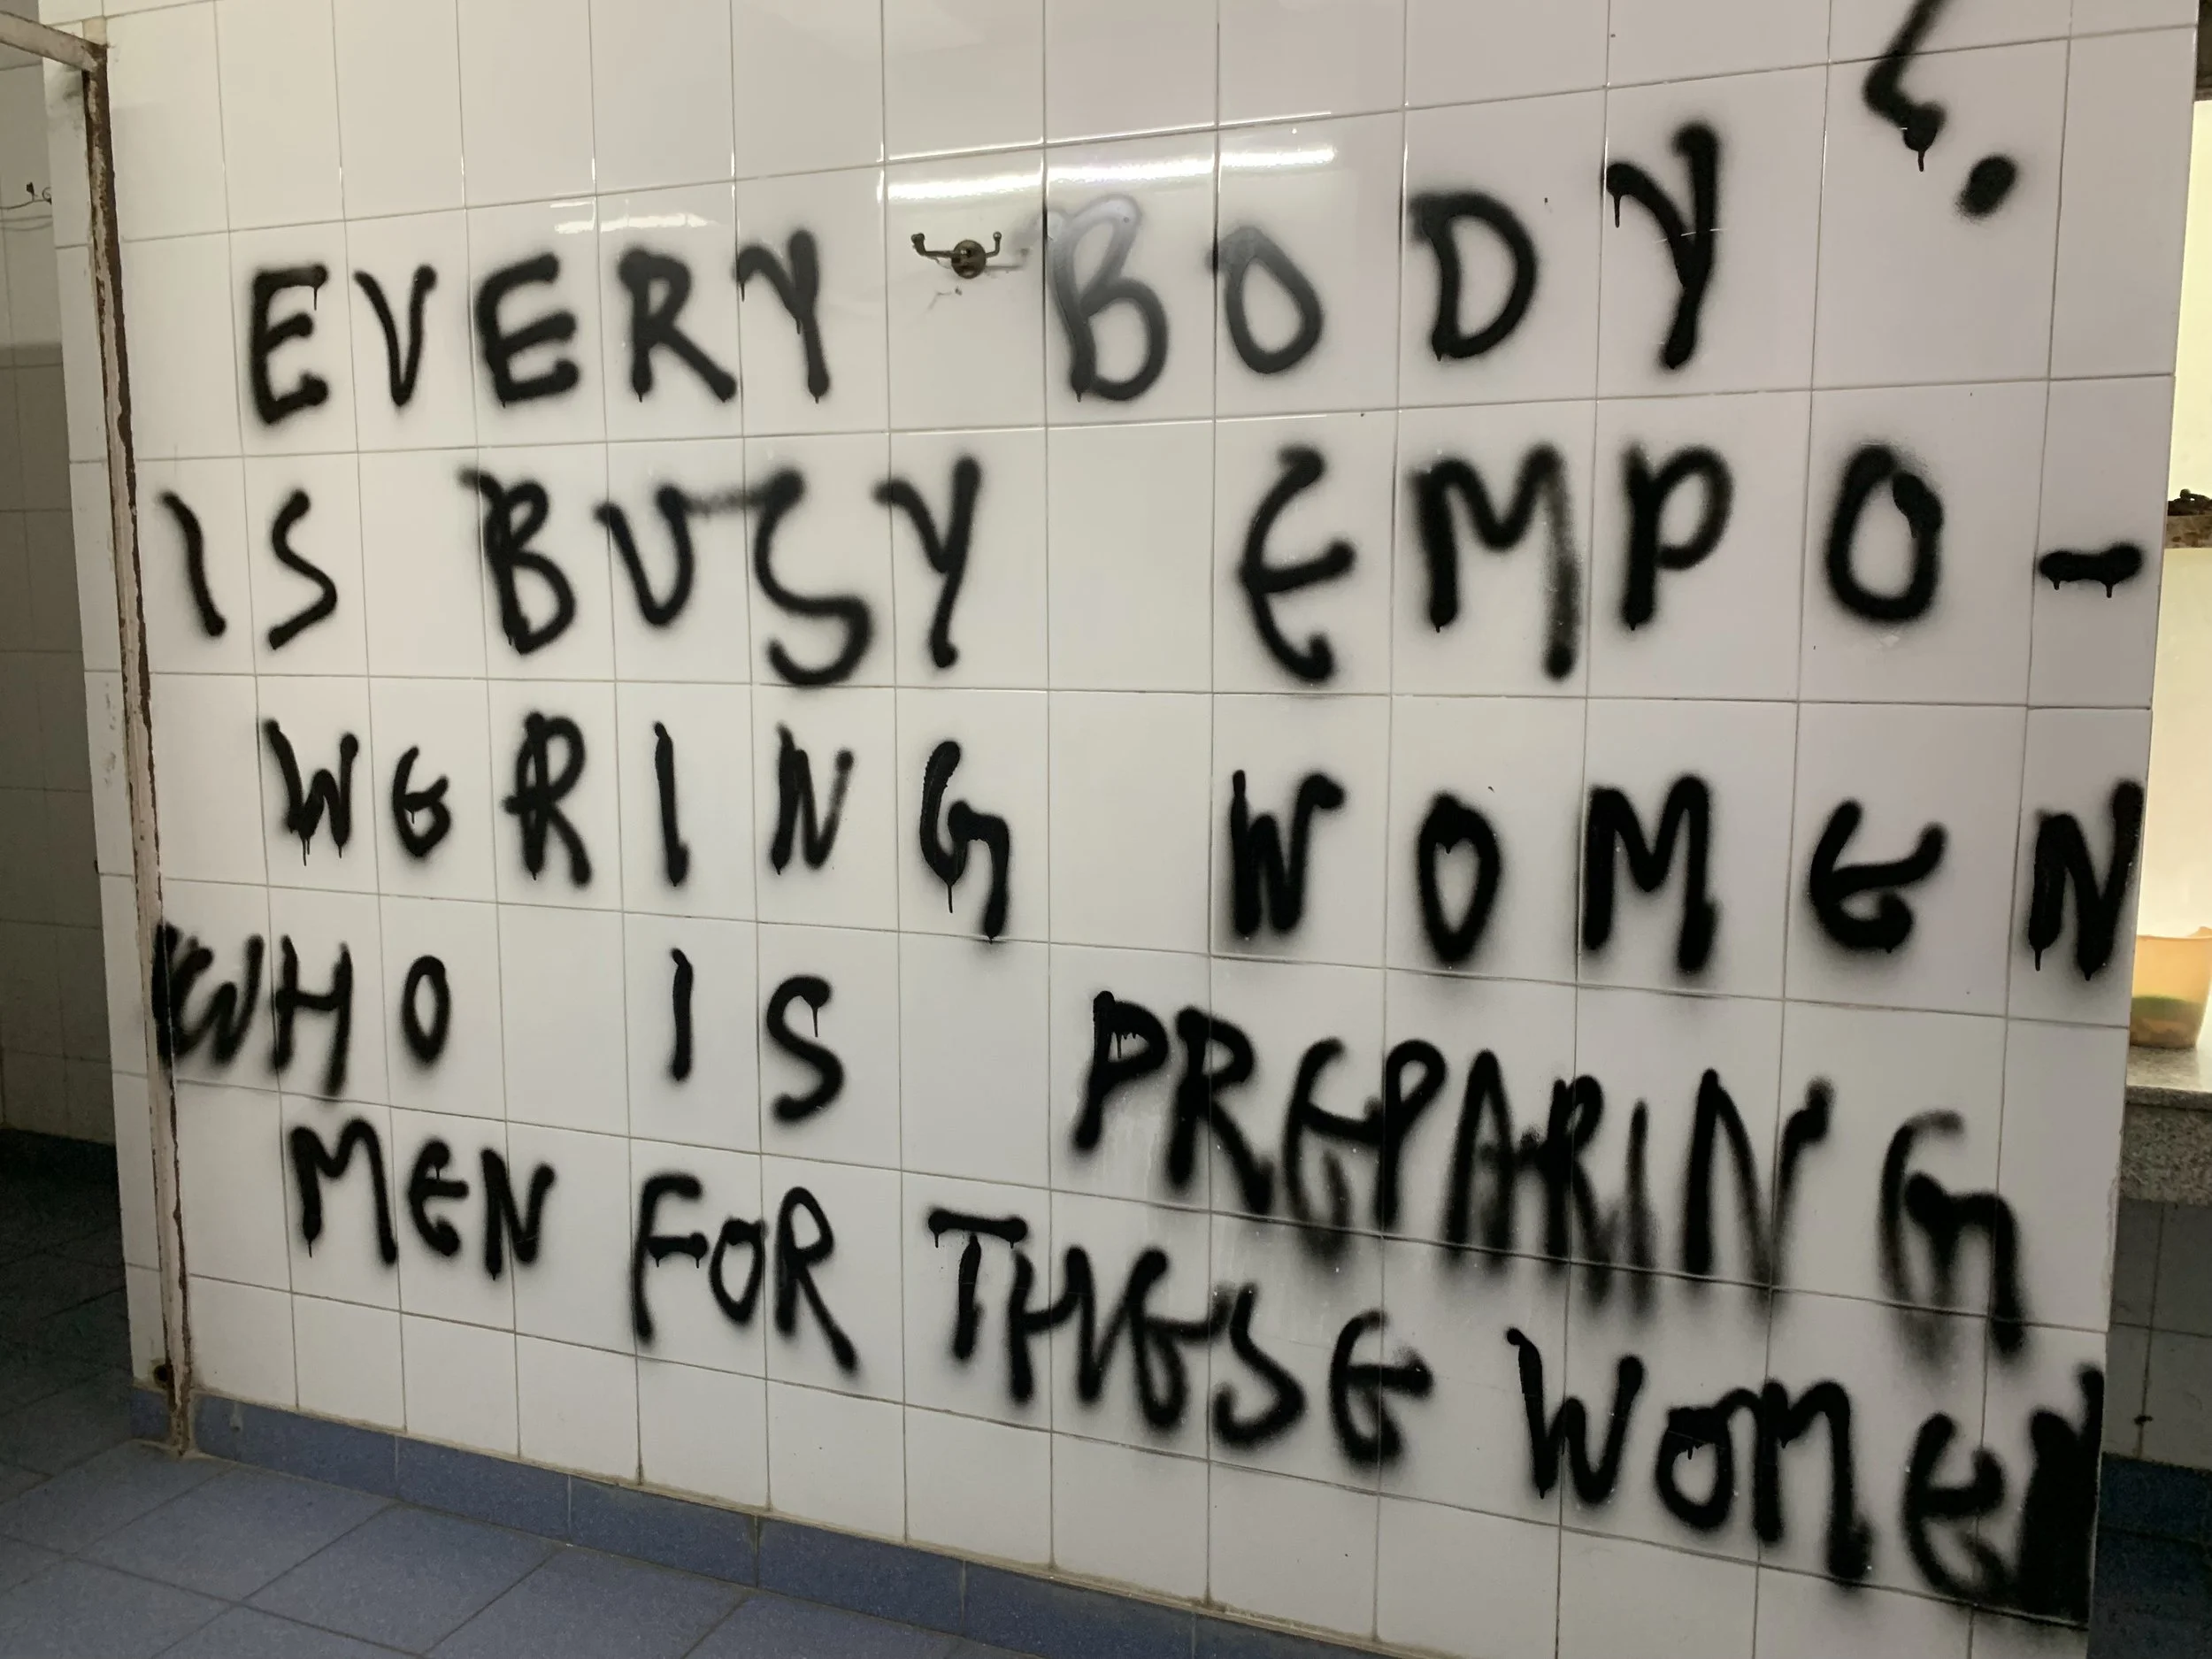 EVERY BODY
IS BUSY EMPO-
WERING WOMEN
WHO IS PREPARING
MEN FOR THESE WOMEN